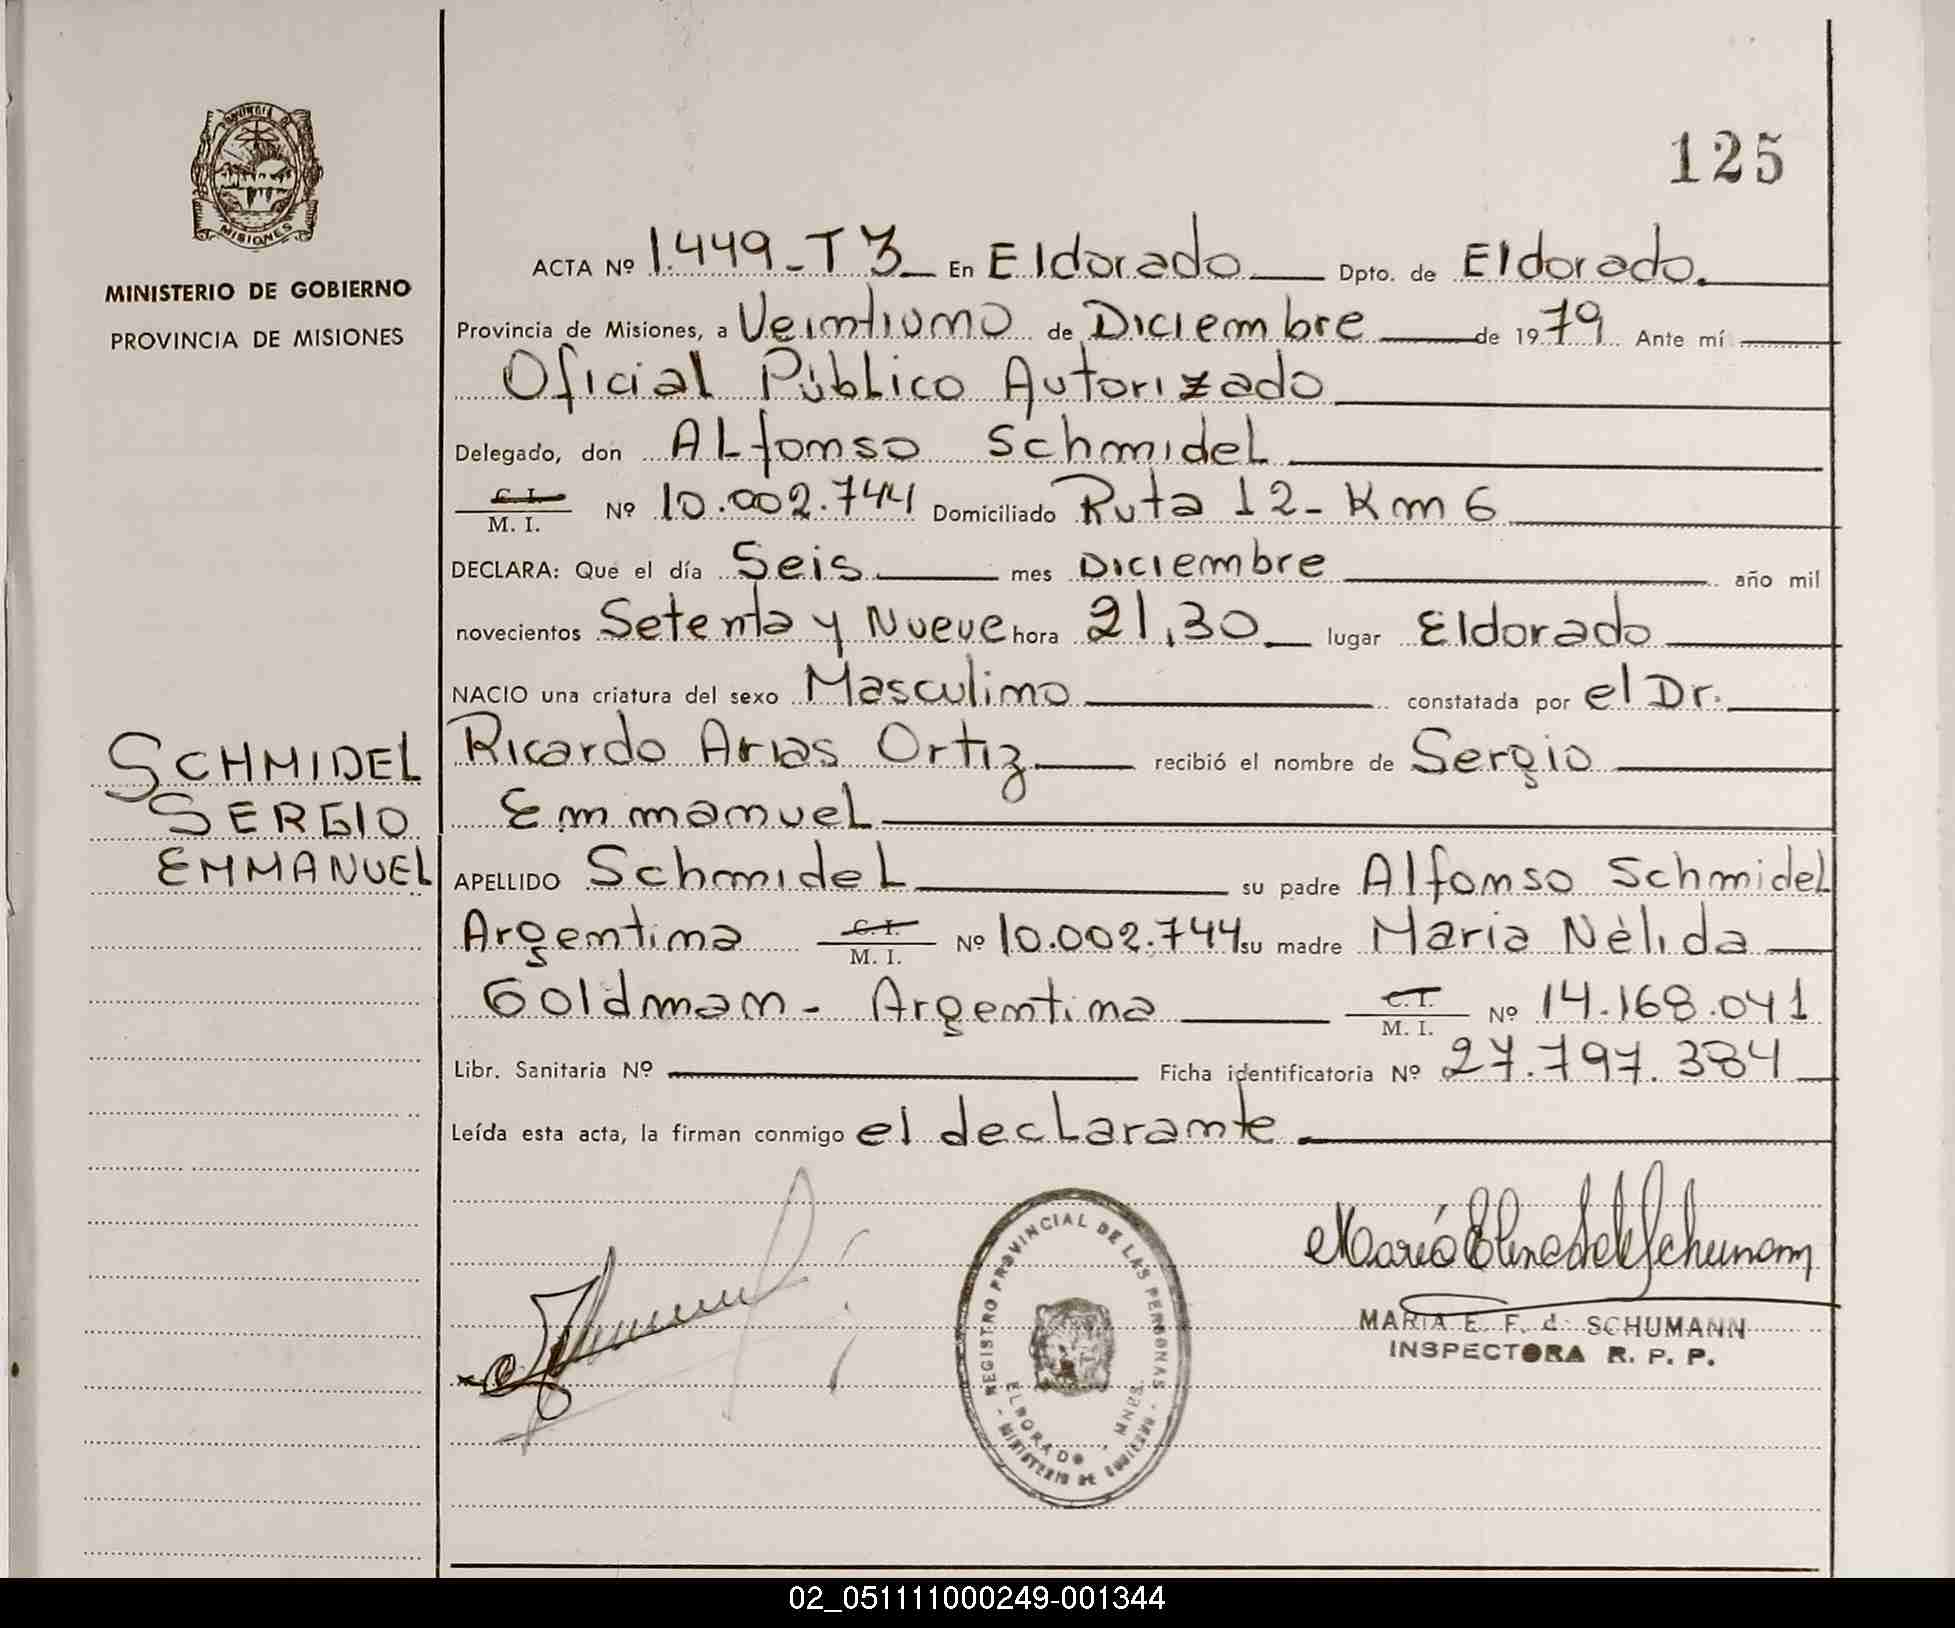 125
PROVINCIA DE
MISIONES
MINISTERIO DE GOBIERNO
PROVINCIA DE MISIONES
ACTA Nº 1.449-T3 En Eldorado Dpto. de Eldorado.
Provincia de Misiones, a Veintiuno de Diciembre de 1979 Ante mí
Oficial Público Autorizado
Delegado, don Alfonso Schmidel
C. I.
M. I. Nº 10.002.744 Domiciliado Ruta 12- Km 6
DECLARA: Que el día Seis mes Diciembre año mil
novecientos Setenta y Nueve hora 21,30 lugar Eldorado
NACIO una criatura del sexo Masculino constatada por el Dr.
Ricardo Arias Ortiz recibió el nombre de Sergio
Emmanuel
SCHMIDEL
SERGIO
EMMANUEL
APELLIDO Schmidel su padre Alfonso Schmidel
Argentina C. I. M. I. Nº 10.002.744 su madre Maria Nèlida
Goldman - Argentina C. I. M. I. Nº 14.168.041
Libr. Sanitaria Nº Ficha identificatoria Nº 27.797.384
Leída esta acta, la firman conmigo el declarante
REGISTRO PROVINCIAL DE LAS PERSONAS
ELDORADO - MNES.
- MINISTERIO DE GOBIERNO -
MARIA E. F. d. SCHUMANN
INSPECTORA R. P. P.
02_051111000249-001344